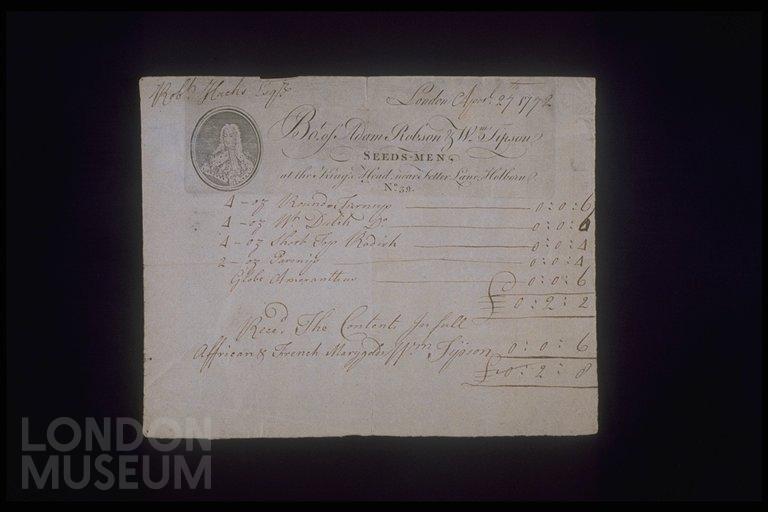 Robt. Hucks Esqr.
London Aprl. 27th 1772
Bot. of Adam Robson & Wm. Tipson
SEEDS-MEN,
at the King's Head near Fetter Lane Holborn
No. 39.
4 - oz Round Turnip 0 : 0 : 6
4 - oz Wt. Dutch Do. 0 : 0 : 6
4 - oz Short Top Radish 0 : 0 : 4
2 - oz Parsnip 0 : 0 : 4
Globe Amaranthus 0 : 0 : 6
£ 0 : 2 : 2
Reced. The Contents In full
Affrican & French Marygolds Wm. Tipson 0 : 0 : 6
£ 0 : 2 : 8
LONDON
MUSEUM